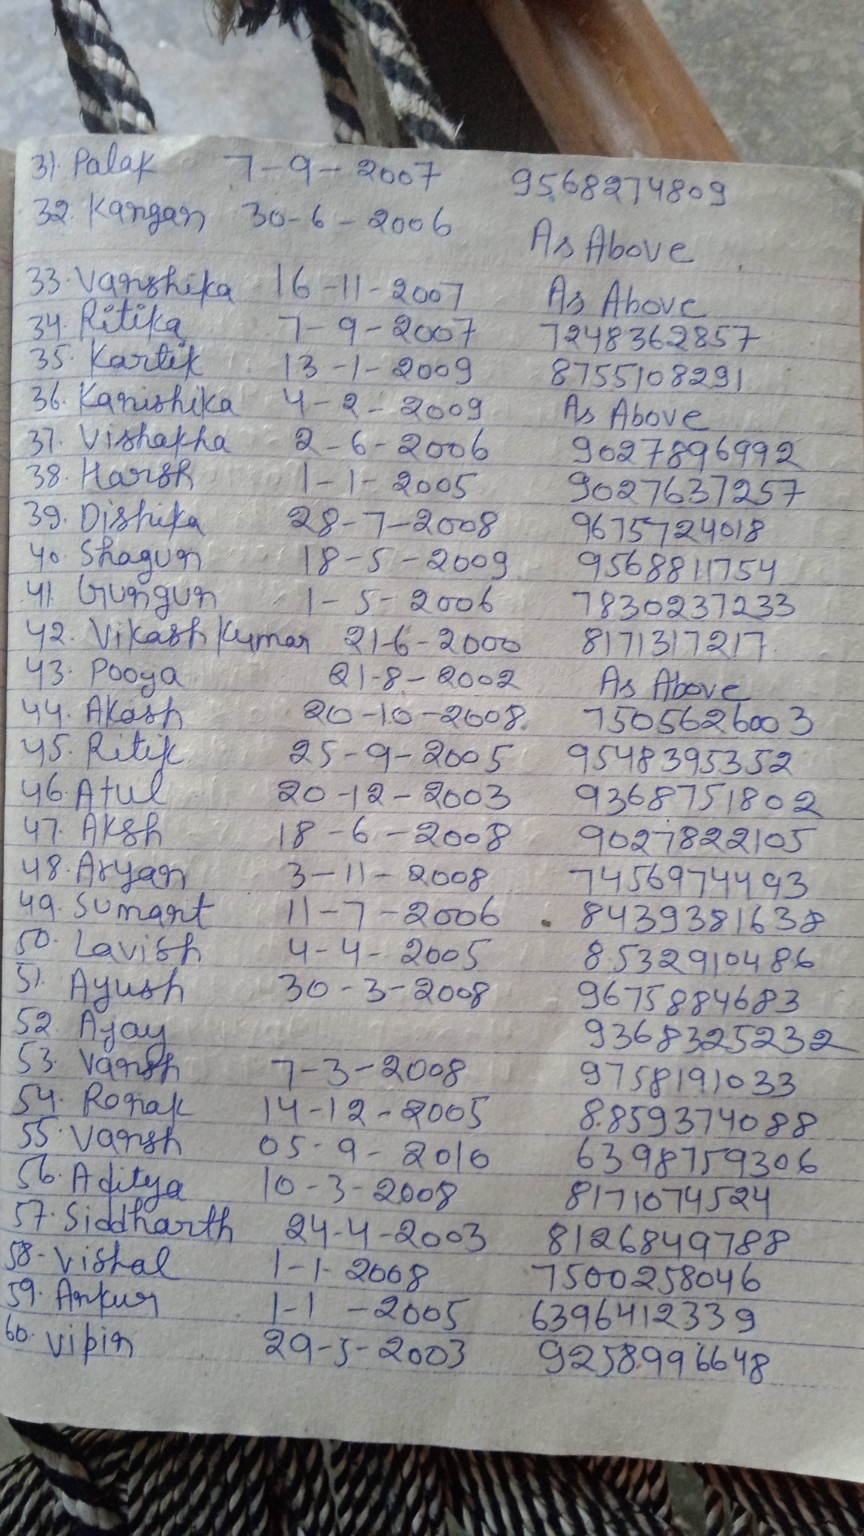 31. Palak 7-9-2007 9568274809
32. Kangan 30-6-2006 As Above
33. Vanshika 16-11-2007 As Above
34. Ritika 7-9-2007 7248362857
35. Kartik 13-1-2009 8755108291
36. Kanishika 4-2-2009 As Above
37. Vishakha 2-6-2006 9027896992
38. Harsh 1-1-2005 9027637257
39. Dishika 28-7-2008 9675724018
40. Shagun 18-5-2009 9568811754
41. Gungun 1-5-2006 7830237233
42. Vikash Kumar 21-6-2000 8171317217
43. Pooja 21-8-2002 As Above
44. Akash 20-10-2008 7505626003
45. Ritik 25-9-2005 9548395352
46. Atul 20-12-2003 9368751802
47. Aksh 18-6-2008 9027822105
48. Aryan 3-11-2008 7456974493
49. Sumant 11-7-2006 8439381638
50. Lavish 4-4-2005 8532910486
51. Ayush 30-3-2008 9675884683
52. Ajay 9368325232
53. Vansh 7-3-2008 9758191033
54. Ronak 14-12-2005 8859374088
55. Vansh 05-9-2010 6398759306
56. Aditya 10-3-2008 8171074524
57. Siddharth 24-4-2003 8126849788
58. Vishal 1-1-2008 7500258046
59. Ankur 1-1-2005 6396412339
60. Vipin 29-5-2003 9258996648